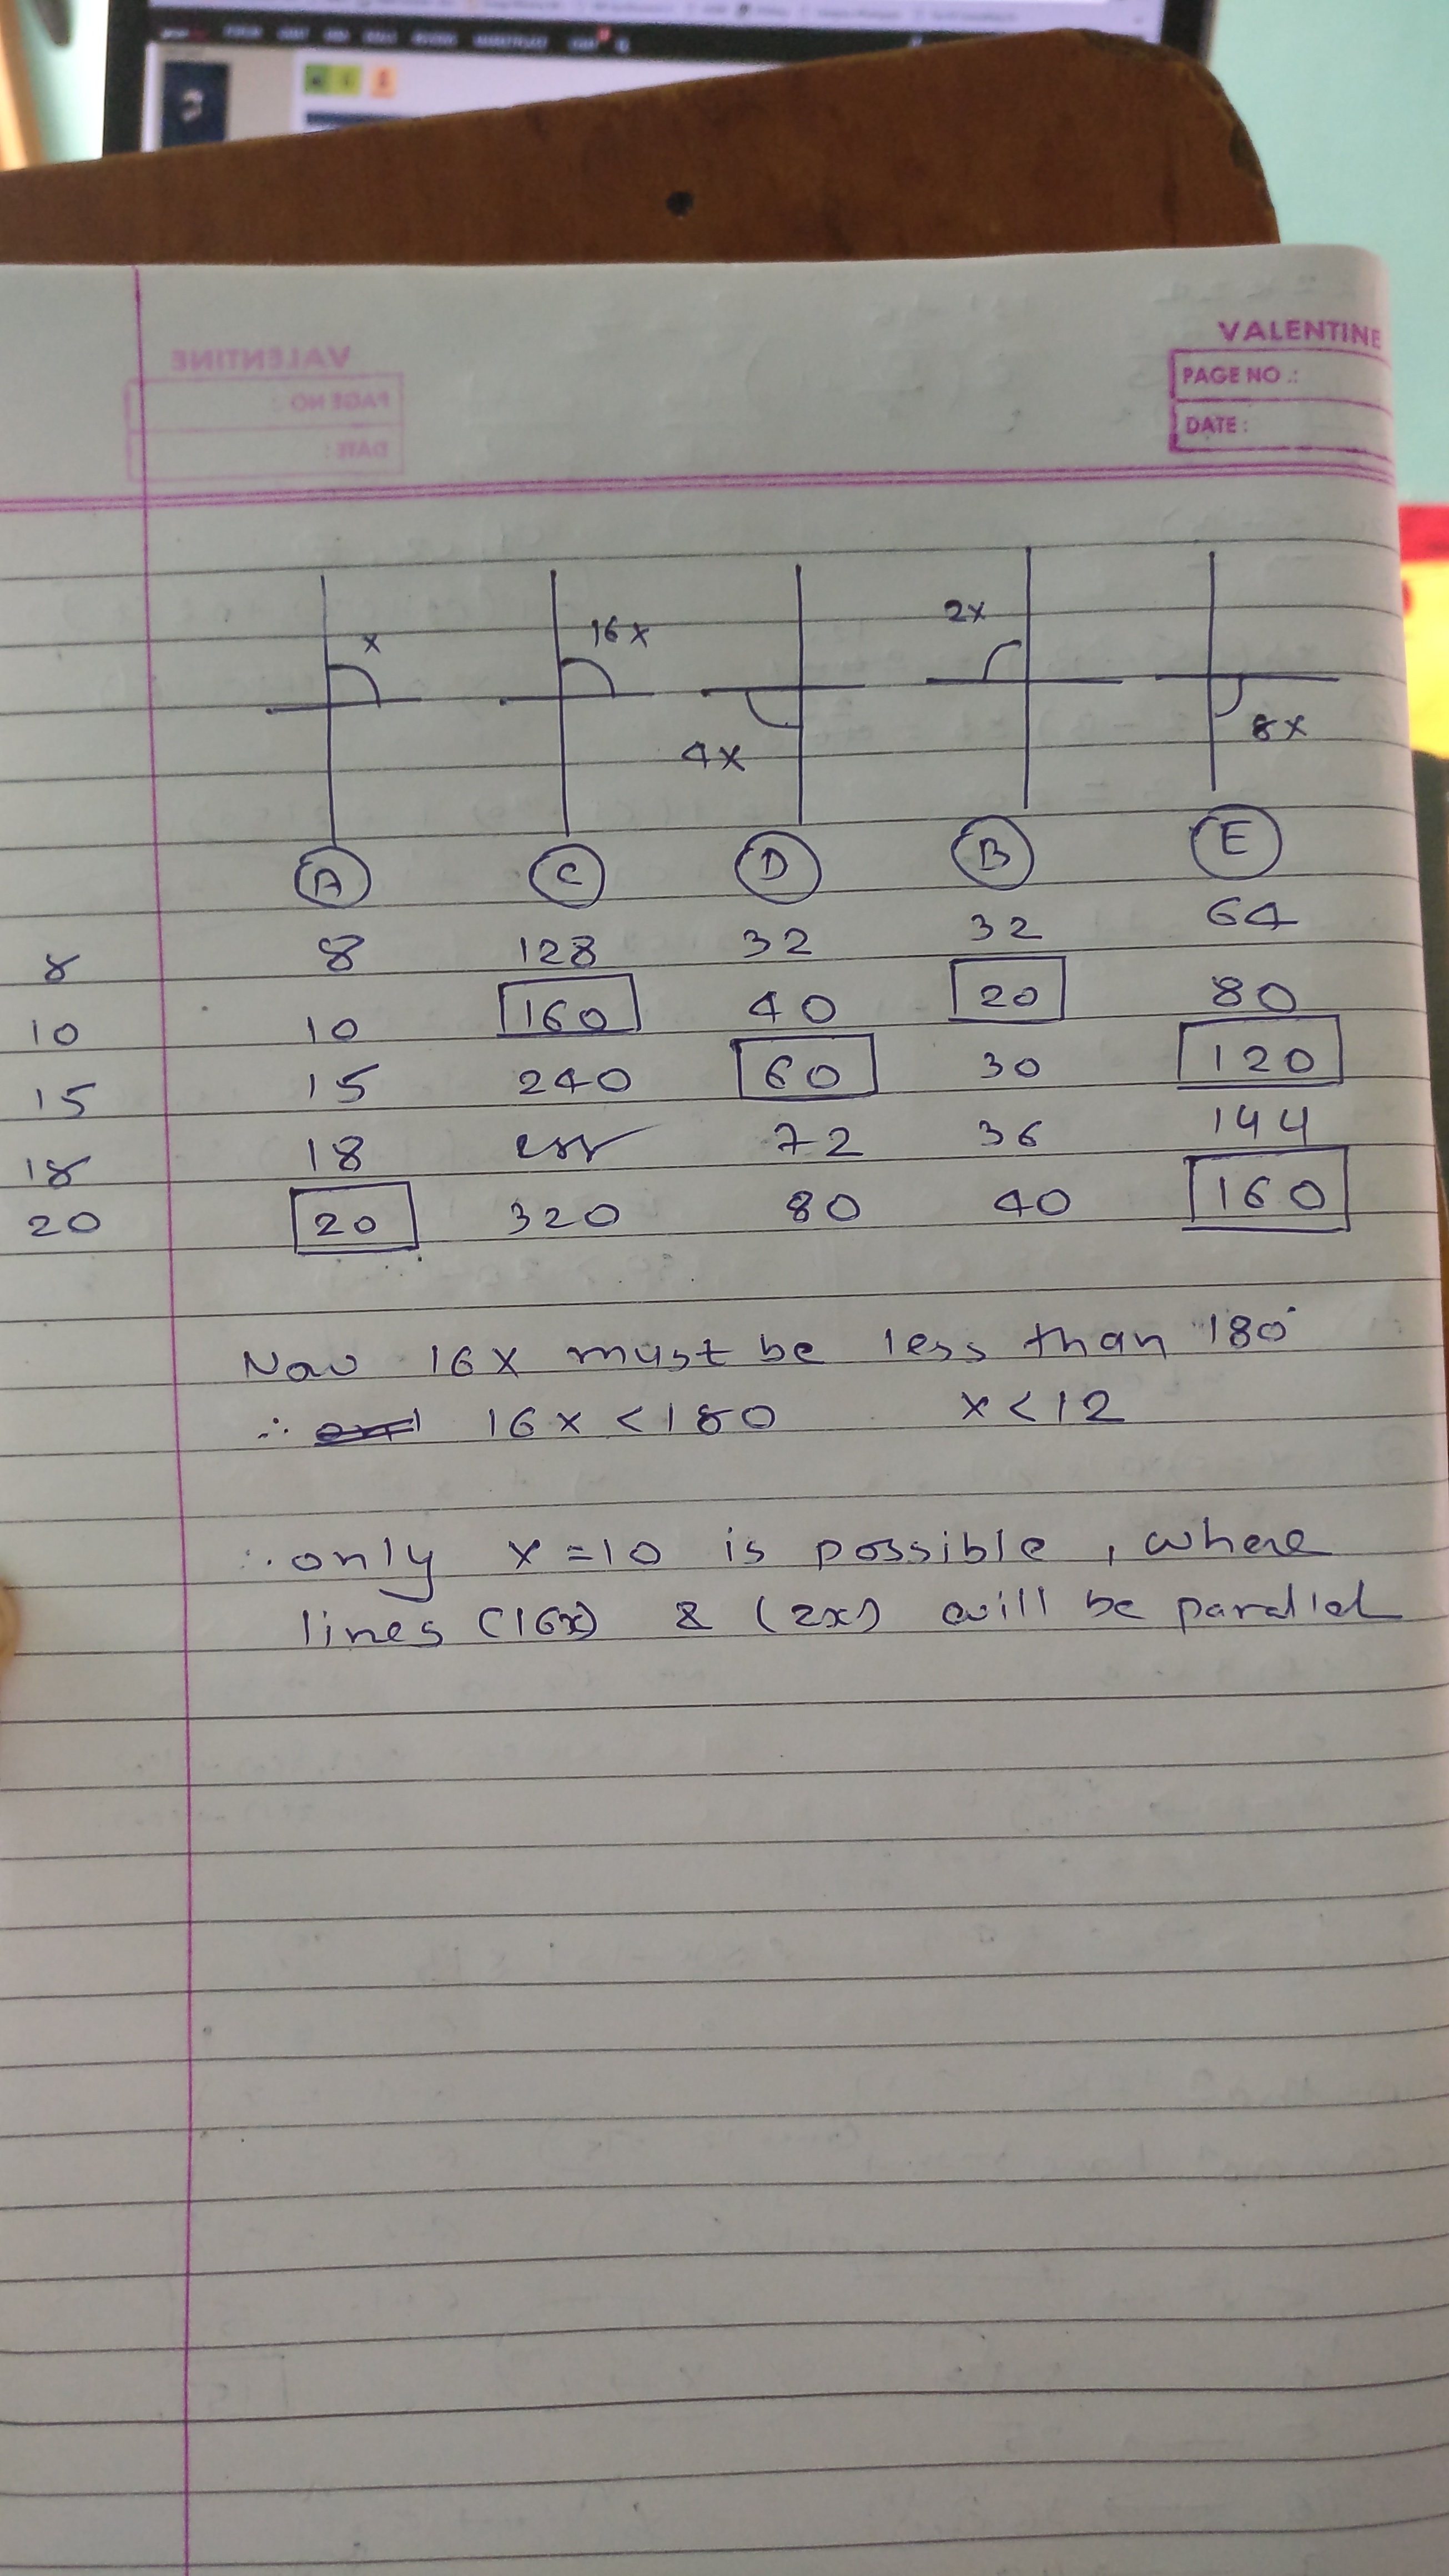 VALENTINE
PAGE NO.:
DATE:
x 16x 4x 2x 8x
A C D B E
8 8 128 32 32 64
10 10 160 40 20 80
15 15 240 60 30 120
18 18 72 36 144
20 20 320 80 40 160
Now 16x must be less than 180°
∴ 16x < 180 x < 12
∴ only x = 10 is possible, where
lines (16x) & (2x) will be parallel